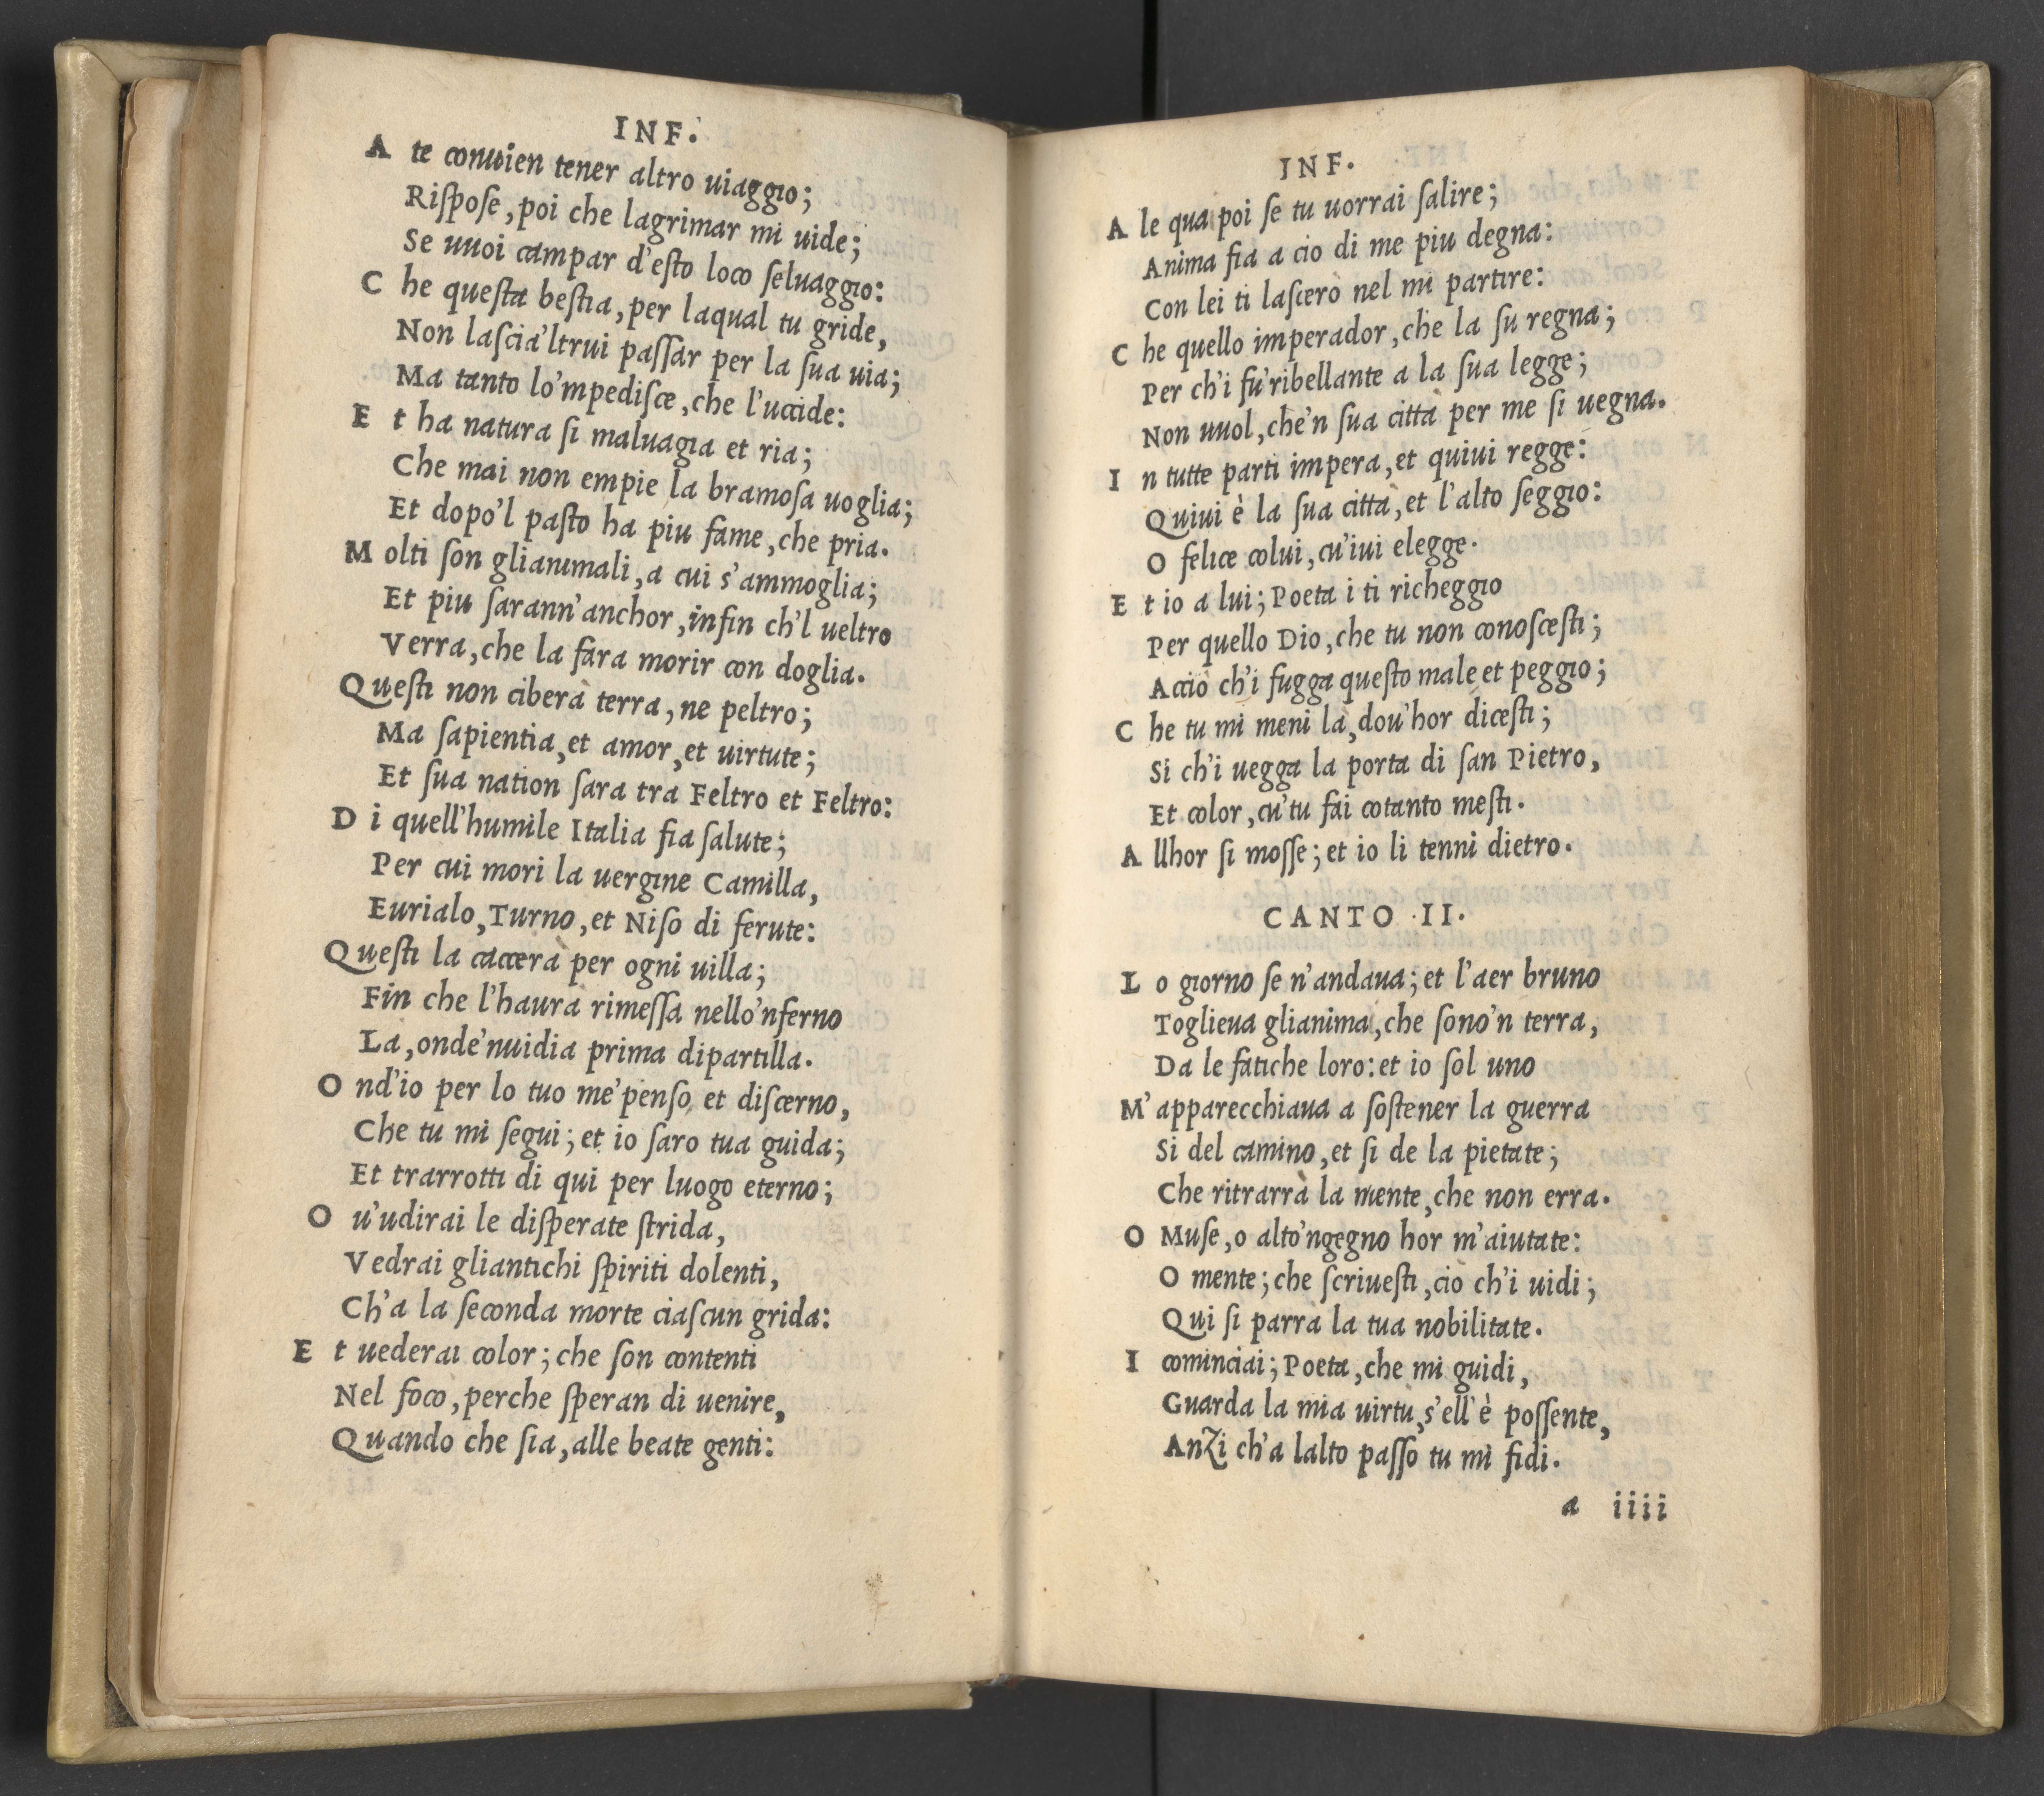 INF.
A te conuien tener altro uiaggio;
Riſpoſe, poi che lagrimar mi uide;
Se uuoi campar d'eſto loco ſeluaggio:
C he queſta beſtia, per laqual tu gride,
Non laſcia'ltrui paſſar per la ſua uia;
Ma tanto lo'mpediſce, che l'uccide:
E t ha natura ſi maluagia et ria;
Che mai non empie la bramoſa uoglia;
Et dopo'l paſto ha piu fame, che pria.
M olti ſon glianimali, a cui s'ammoglia;
Et piu ſarann'anchor, infin ch'l ueltro
Verra, che la fara morir con doglia.
Queſti non ciberà terra, ne peltro;
Ma ſapientia, et amor, et uirtute;
Et ſua nation ſara tra Feltro et Feltro:
D i quell'humile Italia fia ſalute;
Per cui mori la uergine Camilla,
Eurialo, Turno, et Niſo di ferute:
Queſti la caccerà per ogni uilla;
Fin che l'haurà rimeſſa nello'nferno
La, onde'nuidia prima dipartilla.
O nd'io per lo tuo me'penſo et diſcerno,
Che tu mi ſegui; et io ſaro tua guida;
Et trarrotti di qui per luogo eterno;
O u'udirai le diſperate ſtrida,
Vedrai gliantichi ſpiriti dolenti,
Ch'a la ſeconda morte ciaſcun grida:
E t uederai color; che ſon contenti
Nel foco, perche ſperan di uenire,
Quando che ſia, alle beate genti:
INF.
A le qua poi ſe tu uorrai ſalire;
Anima fia a cio di me piu degna:
Con lei ti laſcerò nel mi partire:
C he quello imperador, che la ſu regna;
Per ch'i fu'ribellante a la ſua legge;
Non uuol, che'n ſua città per me ſi uegna.
I n tutte parti impera, et quiui regge:
Quiui è la ſua città, et l'alto ſeggio:
O felice colui, cu'iui elegge.
E t io a lui; Poeta i ti richeggio
Per quello Dio, che tu non conoſceſti;
Acciò ch'i fugga queſto male et peggio;
C he tu mi meni là, dou'hor diceſti;
Si ch'i uegga la porta di ſan Pietro,
Et color, cu'tu fai cotanto meſti.
A llhor ſi moſſe; et io li tenni dietro.
CANTO .II.
L o giorno ſe n'andaua; et l'aer bruno
Toglieua glianimai, che ſono'n terra,
Da le fatiche loro: et io ſol uno
M'apparecchiaua a ſoſtener la guerra
Si del camino, et ſi de la pietate;
Che ritrarrà la mente, che non erra.
O Muſe, o alto'ngegno hor m'aiutate:
O mente; che ſcriueſti, ciò ch'i uidi;
Qui ſi parrà la tua nobilitate.
I cominciai; Poeta, che mi guidi,
Guarda la mia uirtù, s'ell'è poſſente,
Anzi ch'a lalto paſſo tu mi fidi.
a iiii